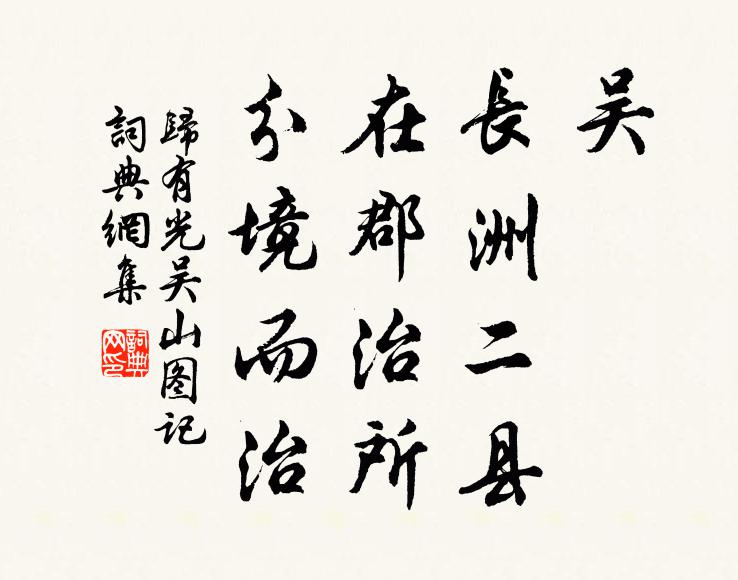 吴
長洲二县
在郡治所
分境而治
歸有光吴山图记
詞典網集
詞典网印